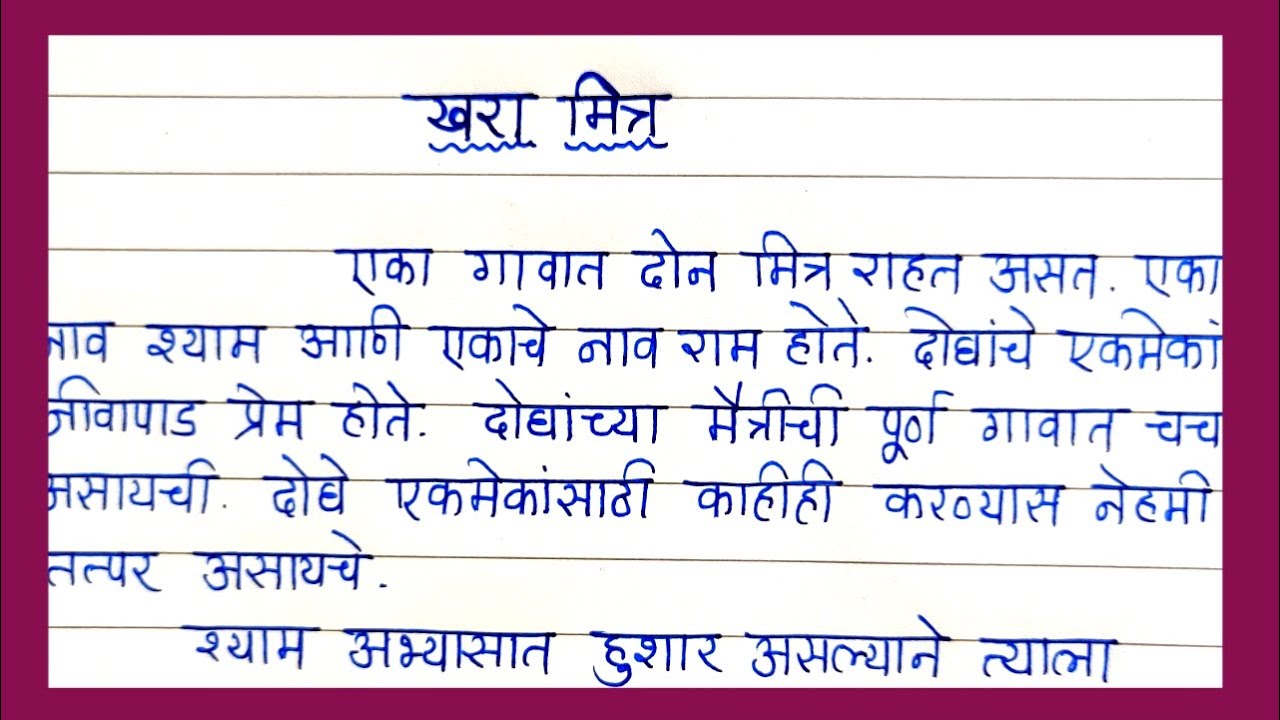 खरा मित्र
एका गावात दोन मित्र राहत असत. एका
नाव श्याम आणि एकाचे नाव राम होते. दोघांचे एकमेकां
जीवापाड प्रेम होते. दोघांच्या मैत्रीची पूर्ण गावात चच
असायची. दोघे एकमेकांसाठी काहीही करण्यास नेहमी
तत्पर असायचे.
श्याम अभ्यासात हुशार असल्याने त्याला